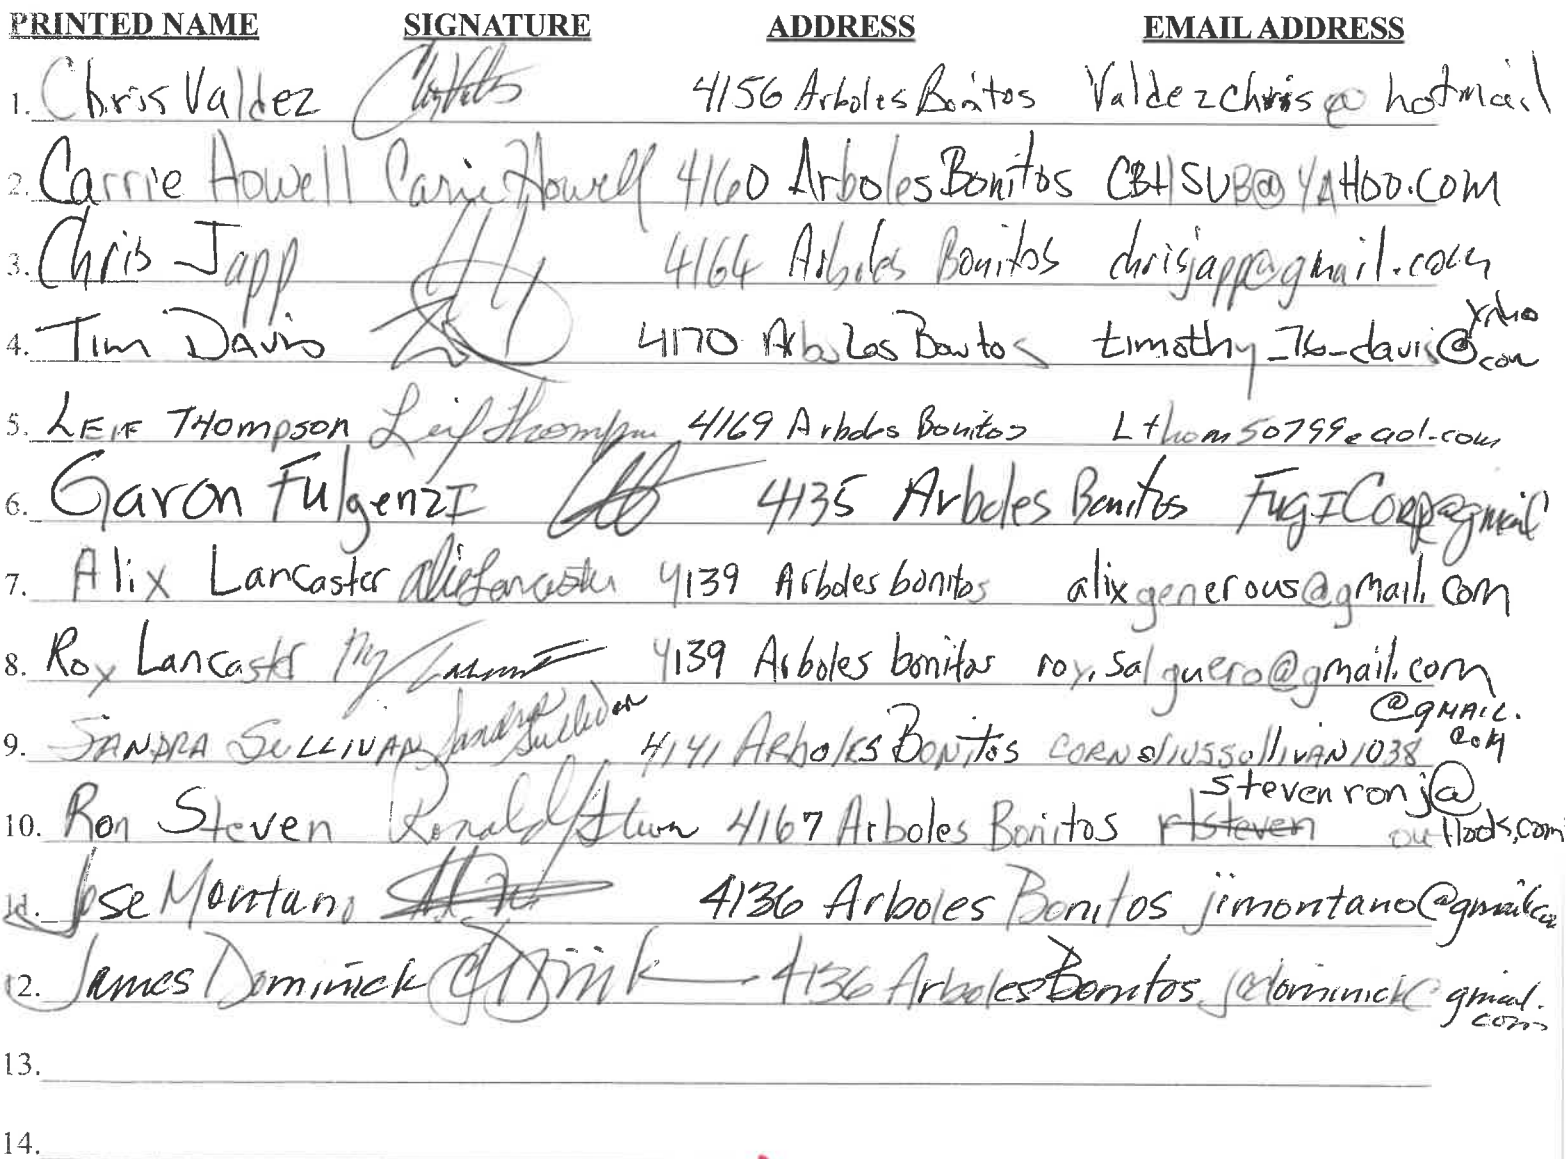 PRINTED NAME SIGNATURE ADDRESS EMAIL ADDRESS
1. Chris Valdez 4156 Arboles Bonitos Valdezchris@hotmail
2. Carrie Howell Carrie Howell 4160 Arboles Bonitos CBHSUB@YAHOO.COM
3. Chris Japp 4164 Arboles Bonitos chrisjapp@gmail.com
4. Tim Davis 4170 Arboles Bonitos timothy_76_davis@yahoo.com
5. LEIF THOMPSON Leif Thompson 4169 Arboles Bonitos Lthom50799@aol.com
6. Garon FulgenzI 4135 Arboles Bonitos FugICorp@gmail
7. Alix Lancaster Alix Lancaster 4139 Arboles bonitos alixgenerous@gmail.com
8. Roy Lancaster 4139 Arboles bonitos roy.salguero@gmail.com
9. SANDRA SULLIVAN Sandra Sullivan 4141 ARboles Bonitos corneliussullivan1038@gmail.com
10. Ron Steven Ronald Steven 4167 Arboles Bonitos rtsteven stevenronj@outlook.com
11. Jose Montano 4136 Arboles Bonitos jimontano@gmail.com
12. James Dominick 4136 Arboles Bonitos jadominick@gmail.com
13.
14.